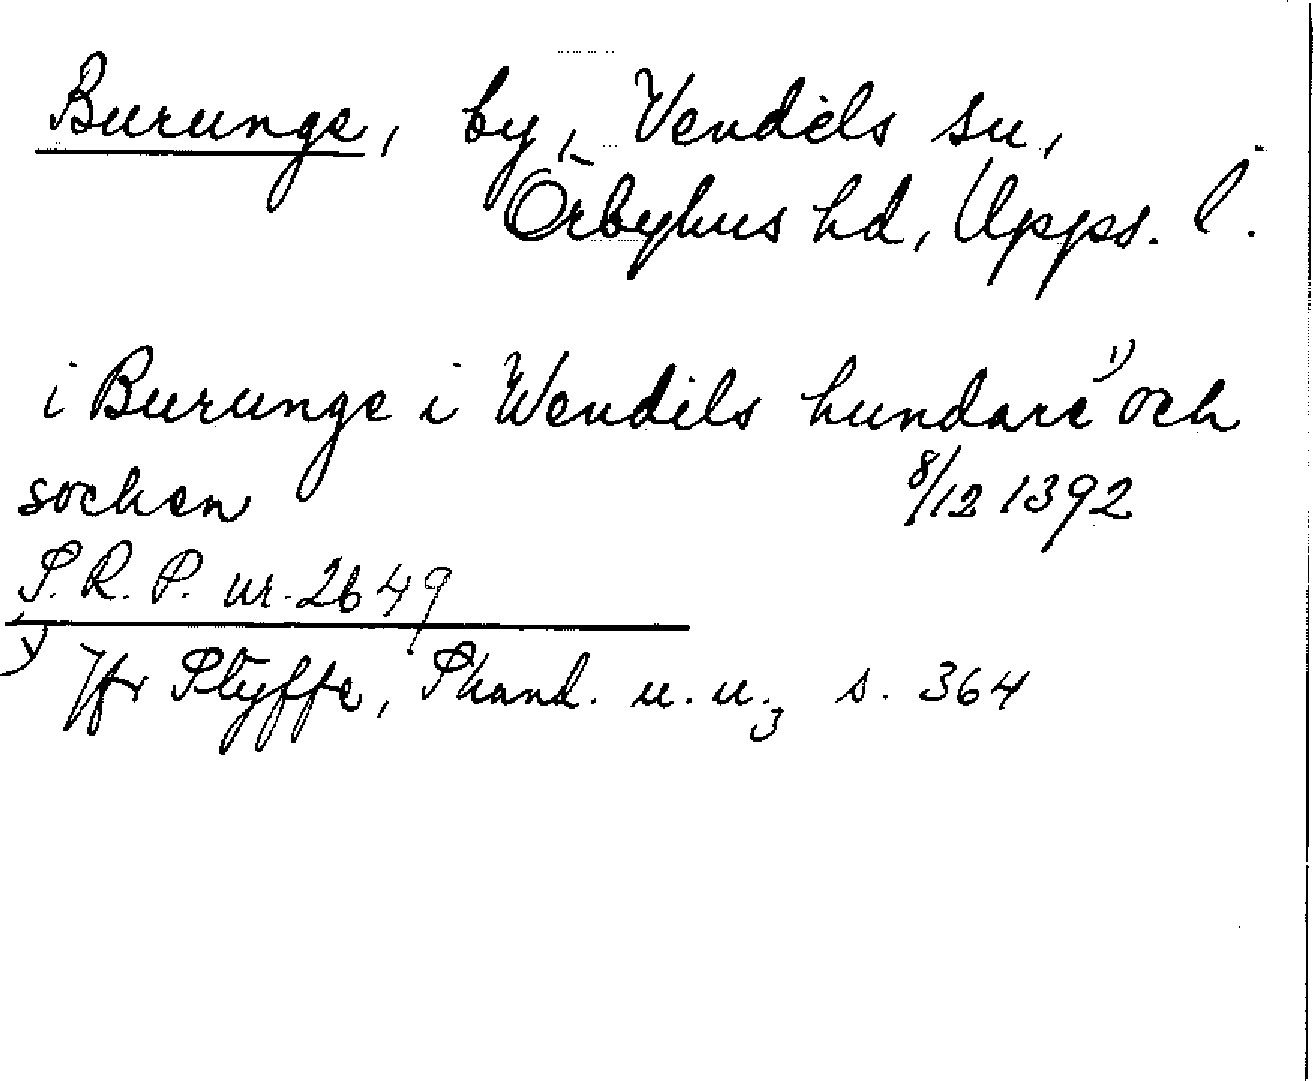 Burunge, by, Vendels sn,
Örbyhus hd, Upps. l.
i Burunge i Wendels hundare 1) och
socken 8/12 1392
S.R.P. nr. 2649
1) Jfr Styffe, Skand. u. u.3 s. 364